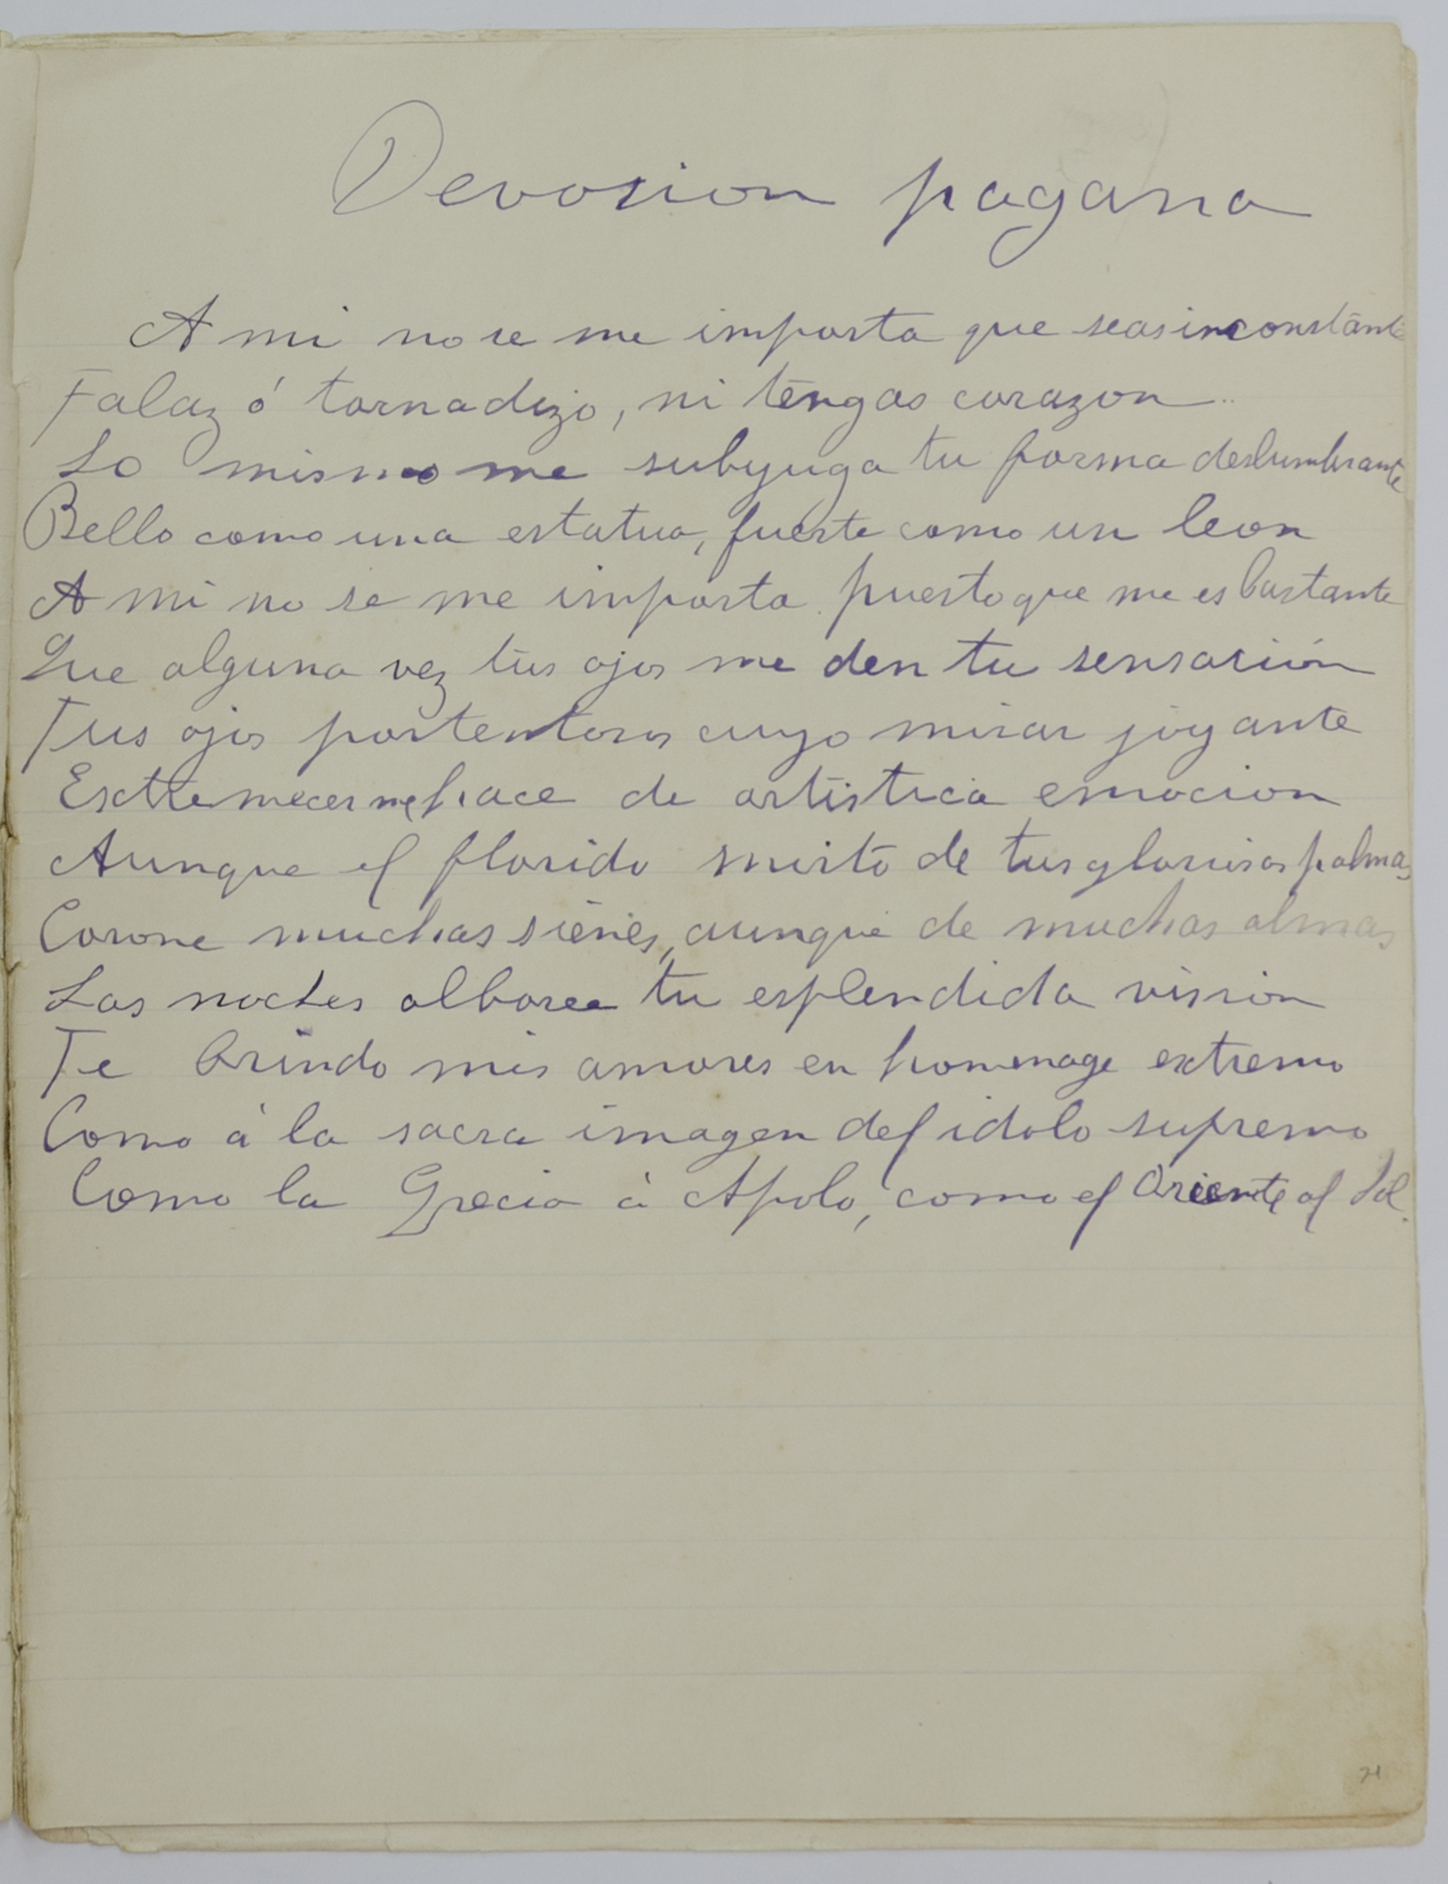 Devosion pagana
A mi no se me importa que seas inconstante
Falaz ó tornadizo, ni tengas corazon..
Lo mismo me subyuga tu forma deslumbrante
Bello como una estatua, fuerte como un leon
A mi no se me importa puesto que me es bastante
Que alguna vez tus ojos me den tu sensasión
Tus ojos portentosos cuyo mirar jigante
Extremecerme hace de artistica emocion
Aunque el florido mirto de tus gloriosas palmas
Corone muchas sienes, aunque de muchas almas
Las noches alboree tu esplendida vision
Te brindo mis amores en homenage extremo
Como á la sacra imagen del idolo supremo
Como la Grecia á Apolo, como el Oriente al Sol.
21